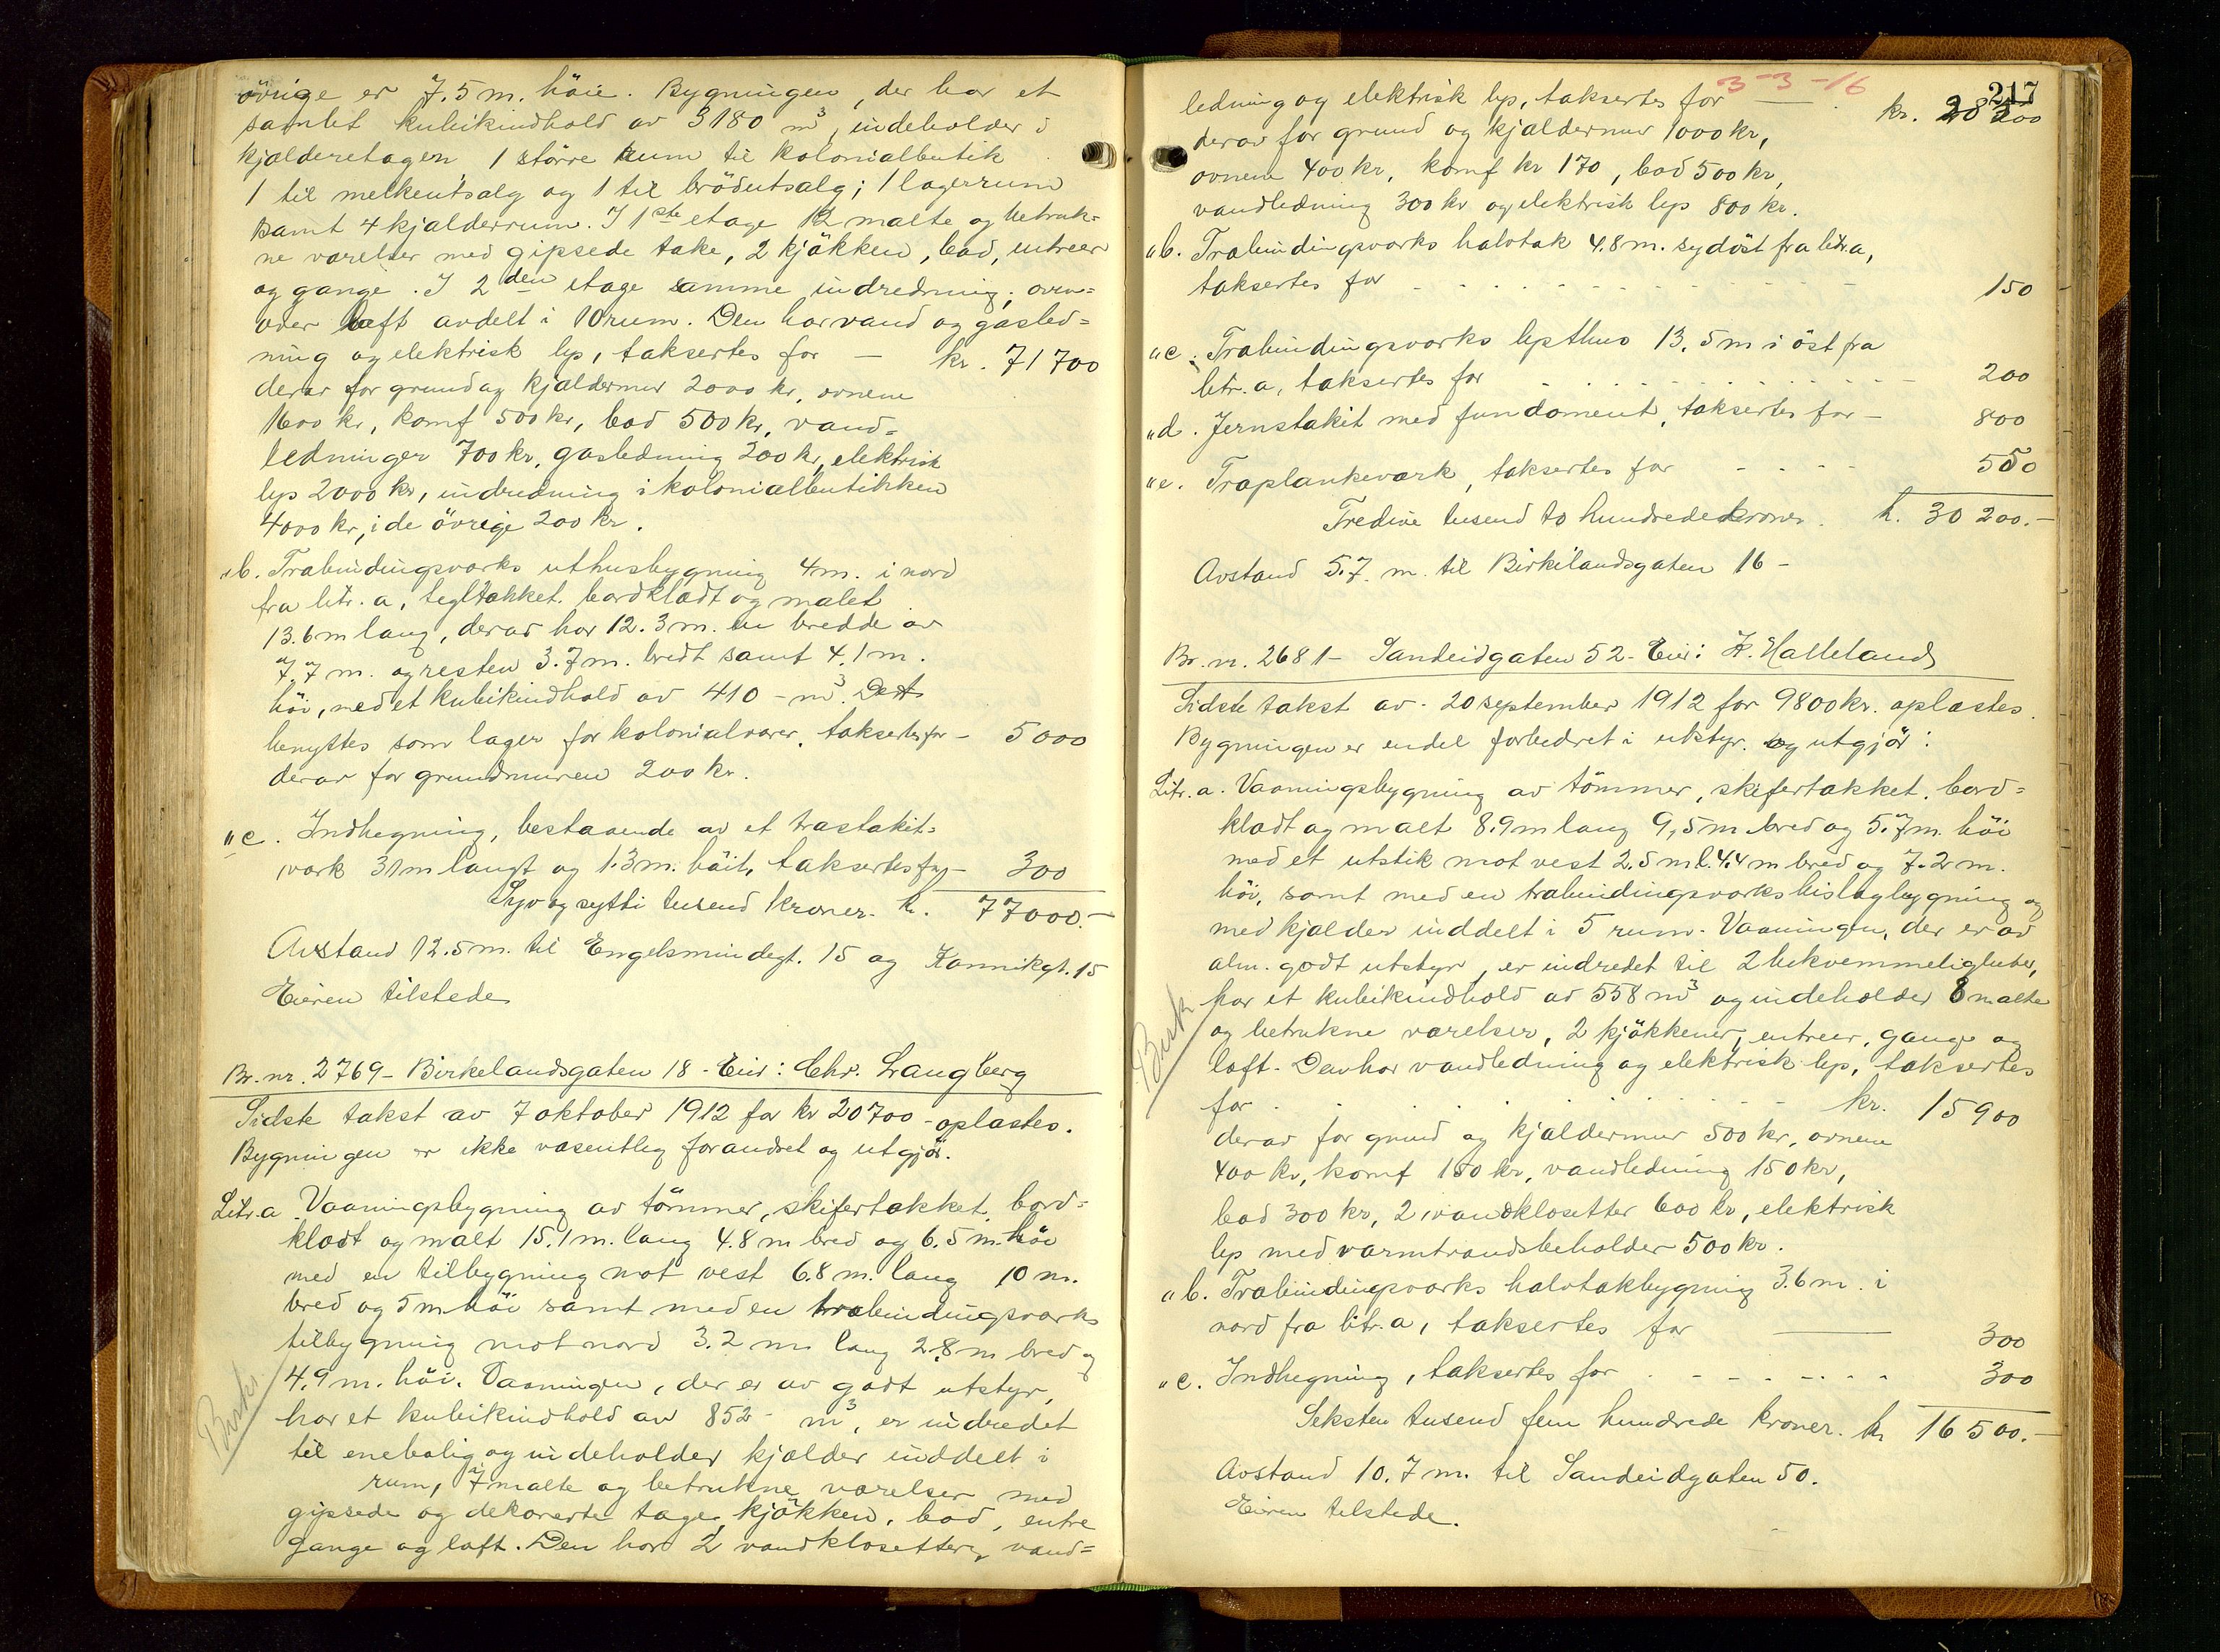 övrige er 7.5 m. höie. Bygningen, der har et
samlet kubikindhold av 3180 m³, indeholder i
kjælderetagen 1 större rum til kolonialbutik
1 til melkeutsalg og 1 til brödutsalg; 1 lagerrum
samt 4 kjælderrum. I 1ste etage 12 malte og betruk=
ne værelser med gipsede take, 2 kjökken, bad, entreer
og gange. I 2den etage samme indredning; oven=
over loft avdelt i 10 rum. Den har vand og gasled=
ning og elektrisk lys, taksertes for — kr. 71700
derav for grund og kjældermur 2000 kr, ovnene
1600 kr, komf 500 kr, bad 500 kr, vand=
ledninger 700 kr, gasledning 200 kr, elektrisk
lys 2000 kr, indredning i kolonialbutikken
4000 kr, i de övrige 200 kr.
"b. Træbindingsværks uthusbygning 4 m. i nord
fra litr. a, tegltækket. bordklædt og malet
13.6 m lang, derav har 12.3 m. en bredde av
7.7 m. og resten 3.7 m. bredt samt 4.1 m.
höi, med et kubikindhold av 410 - m³. Det
benyttes som lager for kolonialvarer, taksertes for - 5000
derav for grundmuren 200 kr.
"c. Indhegning, bestaaende av et træstakit=
værk 31 m langt og 1.3 m. höit, taksertes for - 300
Syv og sytti tusend kroner - k. 77000.-
Avstand 12.5 m. til Engelsmindegt. 15 og Kannikgt. 15
Eieren tilstede
Br. nr. 2769 - Birkelandsgaten 18 - Eier: Chr. Langberg
Sidste takst av 7 oktober 1912 for kr 20700 - oplæstes.
Bygningen er ikke væsentlig forandret og utgjör.
Litr. a Vaaningsbygning av tömmer, skifertækket, bord=
klædt og malt 15.1 m. lang 4.8 m bred og 6.5 m. höi
med en tilbygning mot vest 6.8 m. lang 10 m.
bred og 5 m höi samt med en træbindingsværks
tilbygning mot nord 3.2 m lang 2.8 m bred og
4.9 m. höi. Vaaningen, der er av godt utstyr,
har et kubikindhold av 852 - m³, er indredet
til enebolig og indeholder kjælder inddelt i
rum, 7 malte og betrukne værelser med
gipsede og dekorerte tage, kjökken, bad, entre
gange og loft. Den har 2 vandklosetter, vand=
217
3-3-16
ledning og elektrisk lys, taksertes for — kr. 28500
derav for grund og kjældermur 1000 kr,
ovnene 400 kr, komf kr 170, bad 500 kr,
vandledning 300 kr og elektrisk lys 800 kr.
"b. Træbindingsværks halvtak 4.8 m. sydöst fra litr. a,
taksertes for 150
"c. Træbindingsværks lysthus 13.5 m i öst fra
litr. a, taksertes for 200
"d. Jernstakit med fundament, taksertes for - 800
"e. Træplankeværk, taksertes for 550
Tredive tusend to hundrede kroner. k. 30 200.-
Avstand 5.7 m. til Birkilandsgaten 16 -
Br. nr. 2681 - Sandeidgaten 52 - Eier: K. Halleland
Sidste takst av - 20 september 1912 for 9800 kr. oplæstes.
Bygningen er endel forbedret i utstyr. og utgjör:
Litr. a. Vaaningsbygning av tömmer, skifertækket, bord=
klædt og malt 8.9 m lang 9,5 m bred og 5.7 m. höi
med et utstik mot vest 2.5 m l. 4.4 m bred og 7.2 m.
höi, samt med en træbindingsværks bislagbygning og
med kjælder inddelt i 5 rum. Vaaningen, der er av
alm. godt utstyr, er indredet til 2 bekvemmeligheter,
har et kubikindhold av 558 m³ og indeholder 8 malte
og betrukne værelser, 2 kjökkener, entreer, gange og
loft. Den har vandledning og elektrisk lys, taksertes
for kr. 15900
derav for grund og kjældermur 500 kr, ovnene
400 kr, komf 150 kr, vandledning 150 kr,
bad 300 kr, 2 vandklosetter 600 kr, elektrisk
lys med varmtvandsbeholder 500 kr.
"b. Træbindingsværks halvtakbygning 3.6 m. i
nord fra litr. a, taksertes for — 300
"c. Indhegning, taksertes for 300
Seksten tusend fem hundrede kroner. kr 16 500.-
Avstand 10.7 m. til Sandeidgaten 50.
Eieren tilstede.